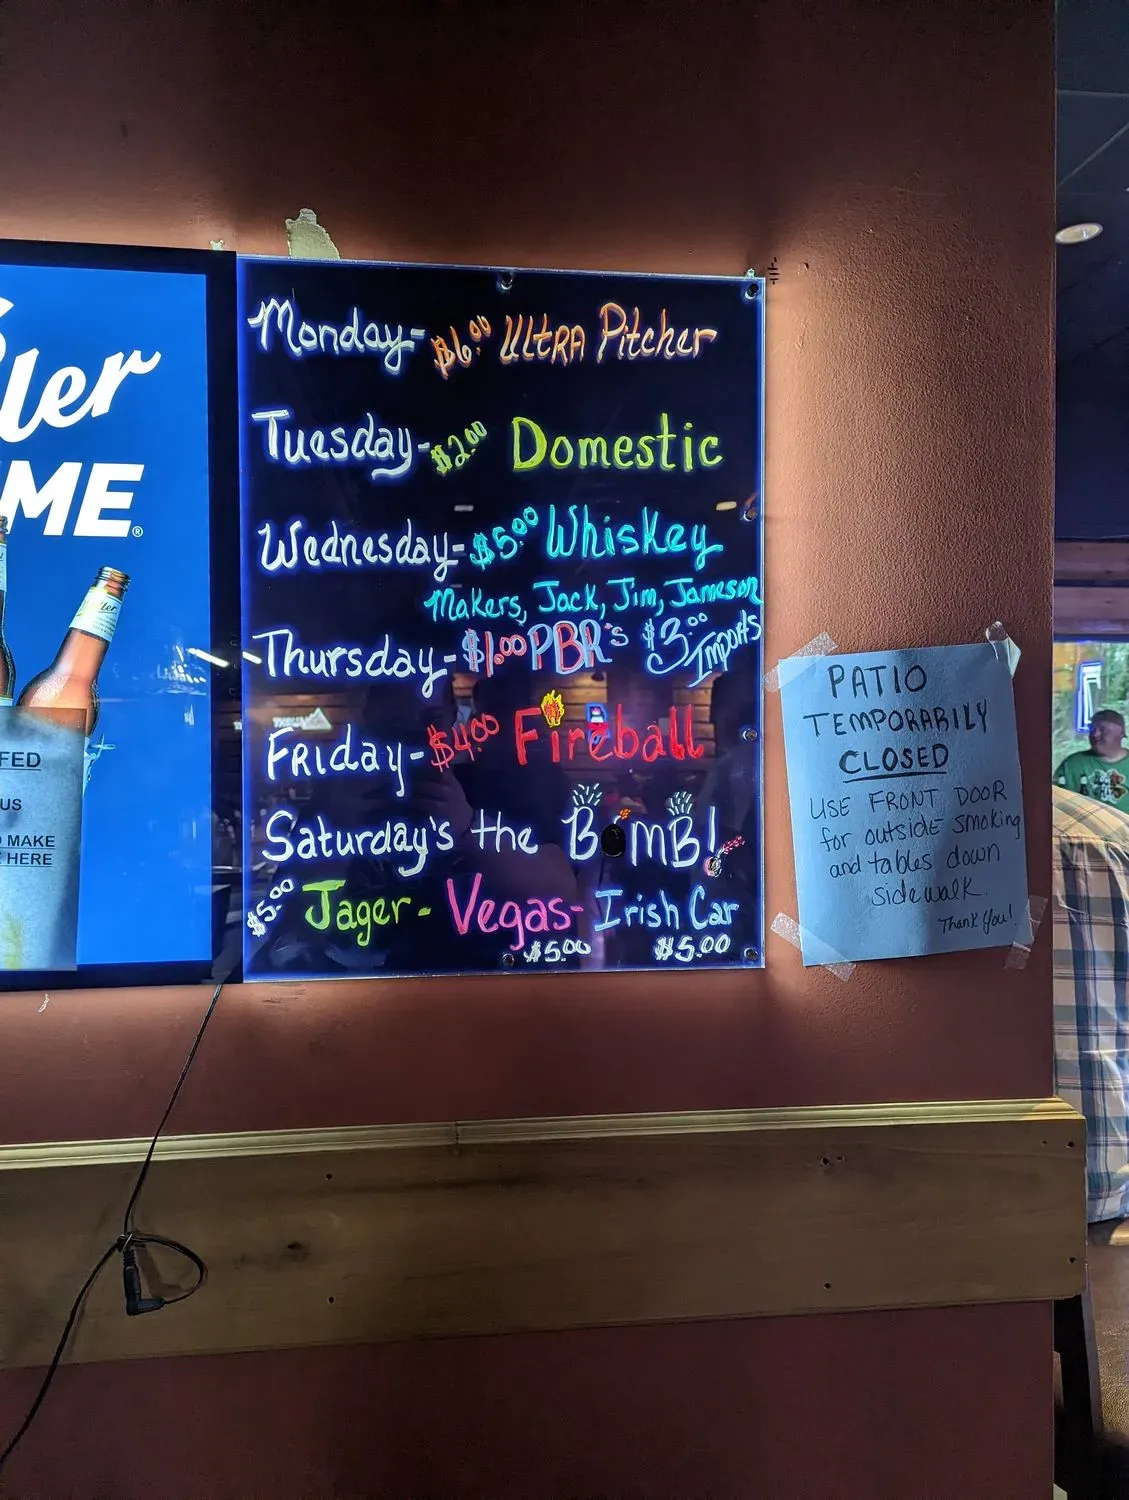 ler
ME®
FED
US
MAKE
HERE
Monday- $6.00 ULtRA Pitcher
Tuesday- $2.00 Domestic
Wednesday- $5.00 Whiskey
Makers, Jack, Jim, Jameson
Thursday- $1.00 PBR's $3.00 Imports
Friday- $4.00 Fireball
Saturday's the BomB!
$5.00 Jager- Vegas- Irish Car
$5.00 $5.00
PATIO
TEMPORARILY
CLOSED
USE FRONT DOOR
for outside smoking
and tables down
sidewalk.
Thank You!